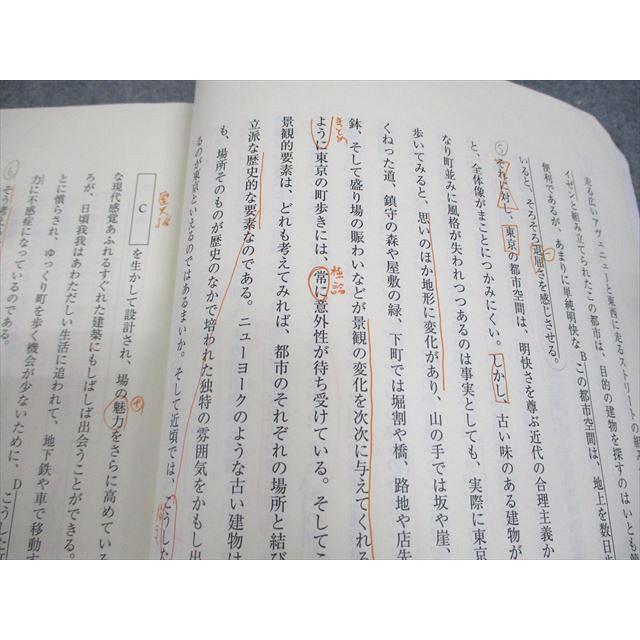 走る広いアヴェニューと東西に走るストリートの組み
イゼンと組み立てられたこの都市は、目的の建物を探すのはいとも簡
便利であるが、あまりに単純明快なBこの都市空間は、地上を数日歩
いると、そろそろ退屈さを感じさせる。
⑤それに対し、東京の都市空間は、明快さを尊ぶ近代の合理主義か
と、全体像がまことにつかみにくい。しかし、古い味のある建物が
なり町並みに風格が失われつつあるのは事実としても、実際に東京
歩いてみると、思いのほか地形に変化があり、山の手では坂や崖、
くねった道、鎮守の森や屋敷の緑、下町では堀割や橋、路地や店先
鉢、そして盛り場の賑わいなどが景観の変化を次々に与えてくれる
まとめ
ように東京の町歩きには、常に意外性が待ち受けている。そしてこ
景観的要素は、どれも考えてみれば、都市のそれぞれの場所と結び
立派な歴史的な要素なのである。ニューヨークのような古い建物は
も、場所そのものが歴史のなかで培われた独特の雰囲気をかもし出
るのが東京といえるのではあるまいか。そして近頃では、こうした
C を生かして設計され、場の魅力をさらに高めている
な現代感覚あふれるすぐれた建築にもしばしば出会うことができる。
ろが、日頃我々はあわただしい生活に追われて、地下鉄や車で移動す
とに慣らされ、ゆっくり町を歩く機会が少ないために、Dこうした
力に不感症になっているのである。
⑥そう考え